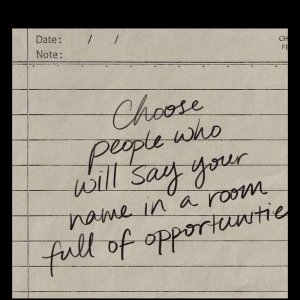 Date: / /
Note:
Choose
people who
will say your
name in a room
full of opportunitie